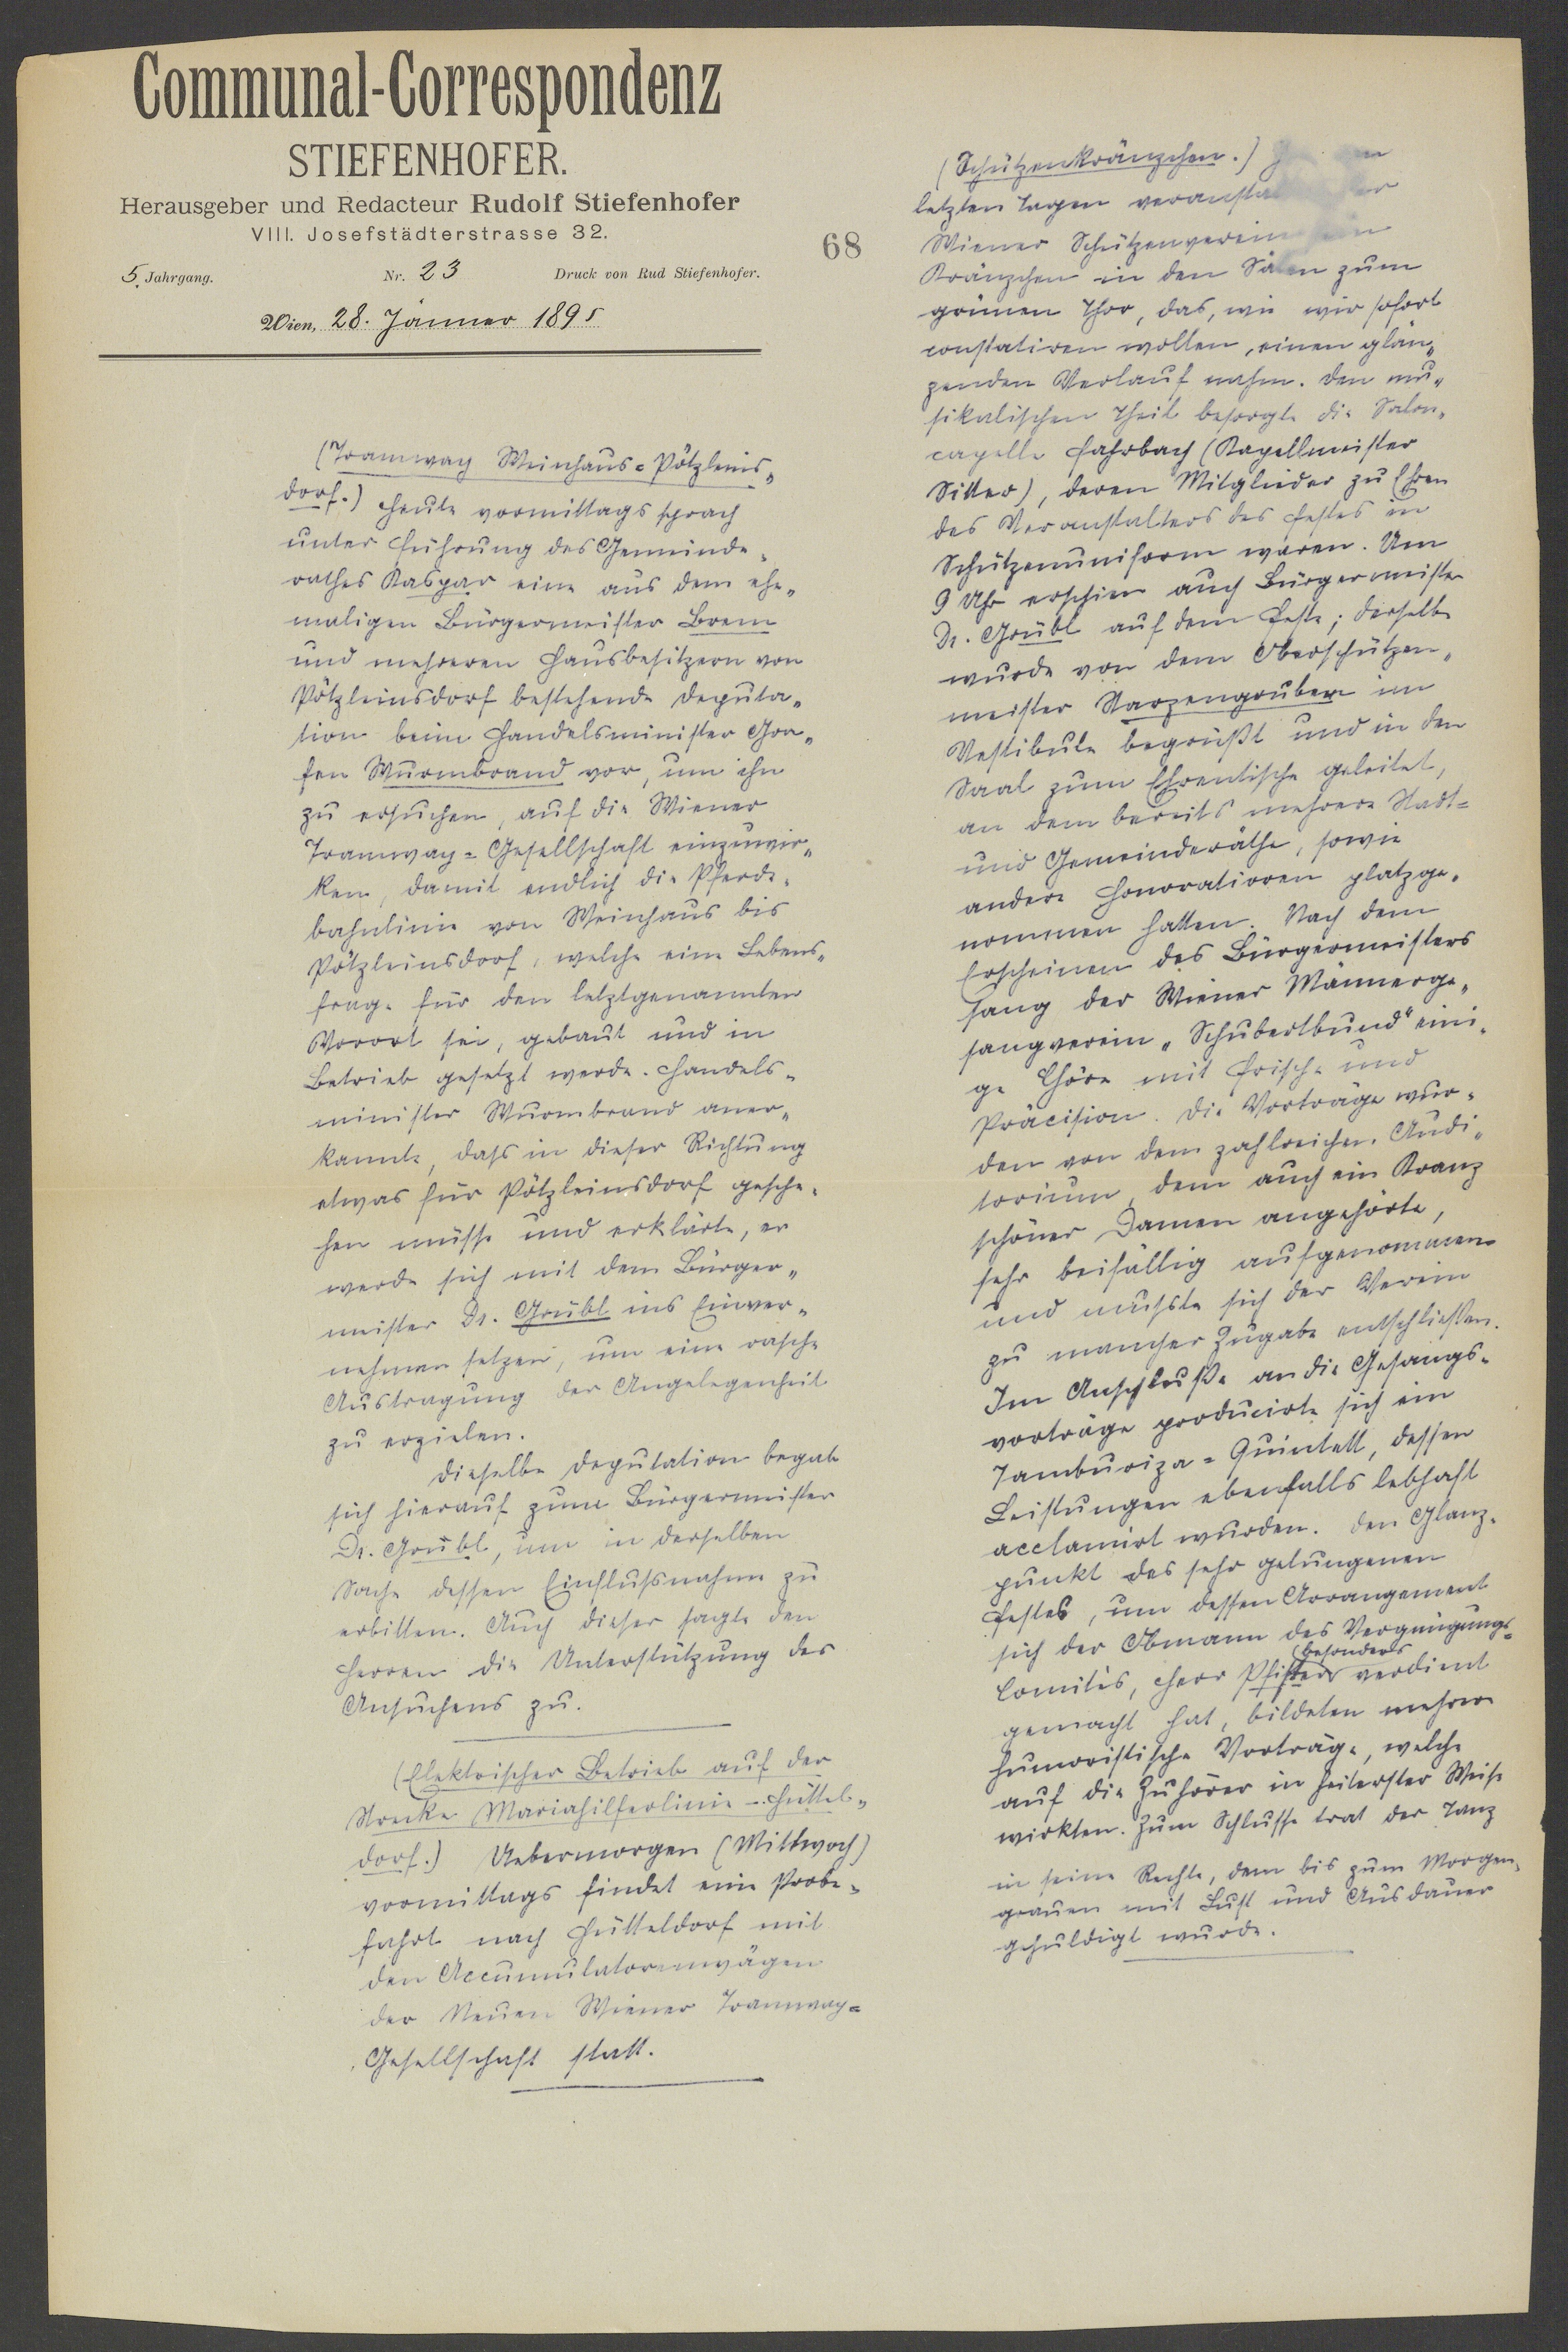 Communal-Correspondenz
STIEFENHOFER.
Herausgeber und Redacteur Rudolf Stiefenhofer
VIII. Josefstädterstrasse 32.
5. Jahrgang. Nr. 23 Druck von Rud Stiefenhofer.
Wien, 28. Jänner 1895
68
(Tramway Weinhaus=Pötzleins„
dorf.) Heute vormittags sprach
unter Führung des Gemeinde„
rathes Kaspar eine aus dem ehe„
maligen Bürgermeister Brem
und mehreren Hausbesitzern von
Pötzleinsdorf bestehende Deputa„
tion beim Handelsminister Gra„
fen Wurmbrand vor, um ihn
zu ersuchen, auf die Wiener
Tramway=Gesellschaft einzuwir„
ken, damit endlich die Pferde„
bahnlinie von Weinhaus bis
Pötzleinsdorf, welche eine Lebens„
frage für den letztgenannten
Vorort sei, gebaut und in
Betrieb gesetzt werde. Handels„
minister Wurmbrand aner„
kannte, dass in dieser Richtung
etwas für Pötzleinsdorf gesche„
hen müsse und erklärte, er
werde sich mit dem Bürger„
meister Dr. Grübl ins Einver„
nehmen setzen, um eine rasche
Austragung der Angelegenheit
zu erzielen.
Dieselbe Deputation begab
sich hierauf zum Bürgermeister
Dr. Grübl, um in derselben
Sache dessen Einflussnahme zu
erbitten. Auch dieser sagte den
Herren die Unterstützung des
Ansuchens zu.
(Elektrischer Betrieb auf der
Strecke Mariahilferlinie - Hüttel„
dorf.) Uebermorgen (Mittwoch)
vormittags findet eine Probe„
fahrt nach Hütteldorf mit
den Accumulatorenwägen
der Neuen Wiener Tramway=
Gesellschaft statt.
(Schützenkränzchen.)
letzten Tagen
Wiener Schützenverein
Kränzchen in den Sälen zum
grünen Thor, das, wie wir sofort
constatiren wollen, einen glän„
zenden Verlauf nahm. Den mu„
sikalischen Theil besorgte die Salon„
capelle Fahrbach (Kapellmeister
Sitter), deren Mitglieder zu Ehren
des Veranstalters des Festes in
Schützenuniform waren. Um
9 Uhr erschien auch Bürgermeister
Dr. Grübl auf dem Feste; derselbe
wurde von dem Oberschützen„
meister Karzengruber im
Vestibule begrüßt und in den
Saal zum Ehrentische geleitet,
an dem bereits mehrere Stadt=
und Gemeinderäthe, sowie
andere Honoratioren platzge„
nommen hatten. Nach dem
Erscheinen des Bürgermeisters
sang der Wiener Männerge„
sangverein „Schubertbund" eini„
ge Chöre mit Frische und
Präcision. Die Vorträge wur„
den von dem zahlreichen Audi„
torium, dem auch ein Kranz
schöner Damen angehörte,
sehr beifällig aufgenommen
und musste sich der Verein
zu mancher Zugabe entschließen.
Im Anschluße an die Gesangs„
vorträge producirte sich ein
Tamburiza=Quintett, dessen
Leistungen ebenfalls lebhaft
acclamirt wurden. Den Glanz„
punkt des sehr gelungenen
Festes, um dessen Arrangement
sich der Obmann des Vergnügungs„
Comités, Herr Pfister besonders verdient
gemacht hat, bildeten mehrere
humoristische Vorträge, welche
auf die Zuhörer in heiterster Weise
wirkten. Zum Schlusse trat der Tanz
in seine Rechte, dem bis zum Morgen„
grauen mit Lust und Ausdauer
gehuldigt wurde.